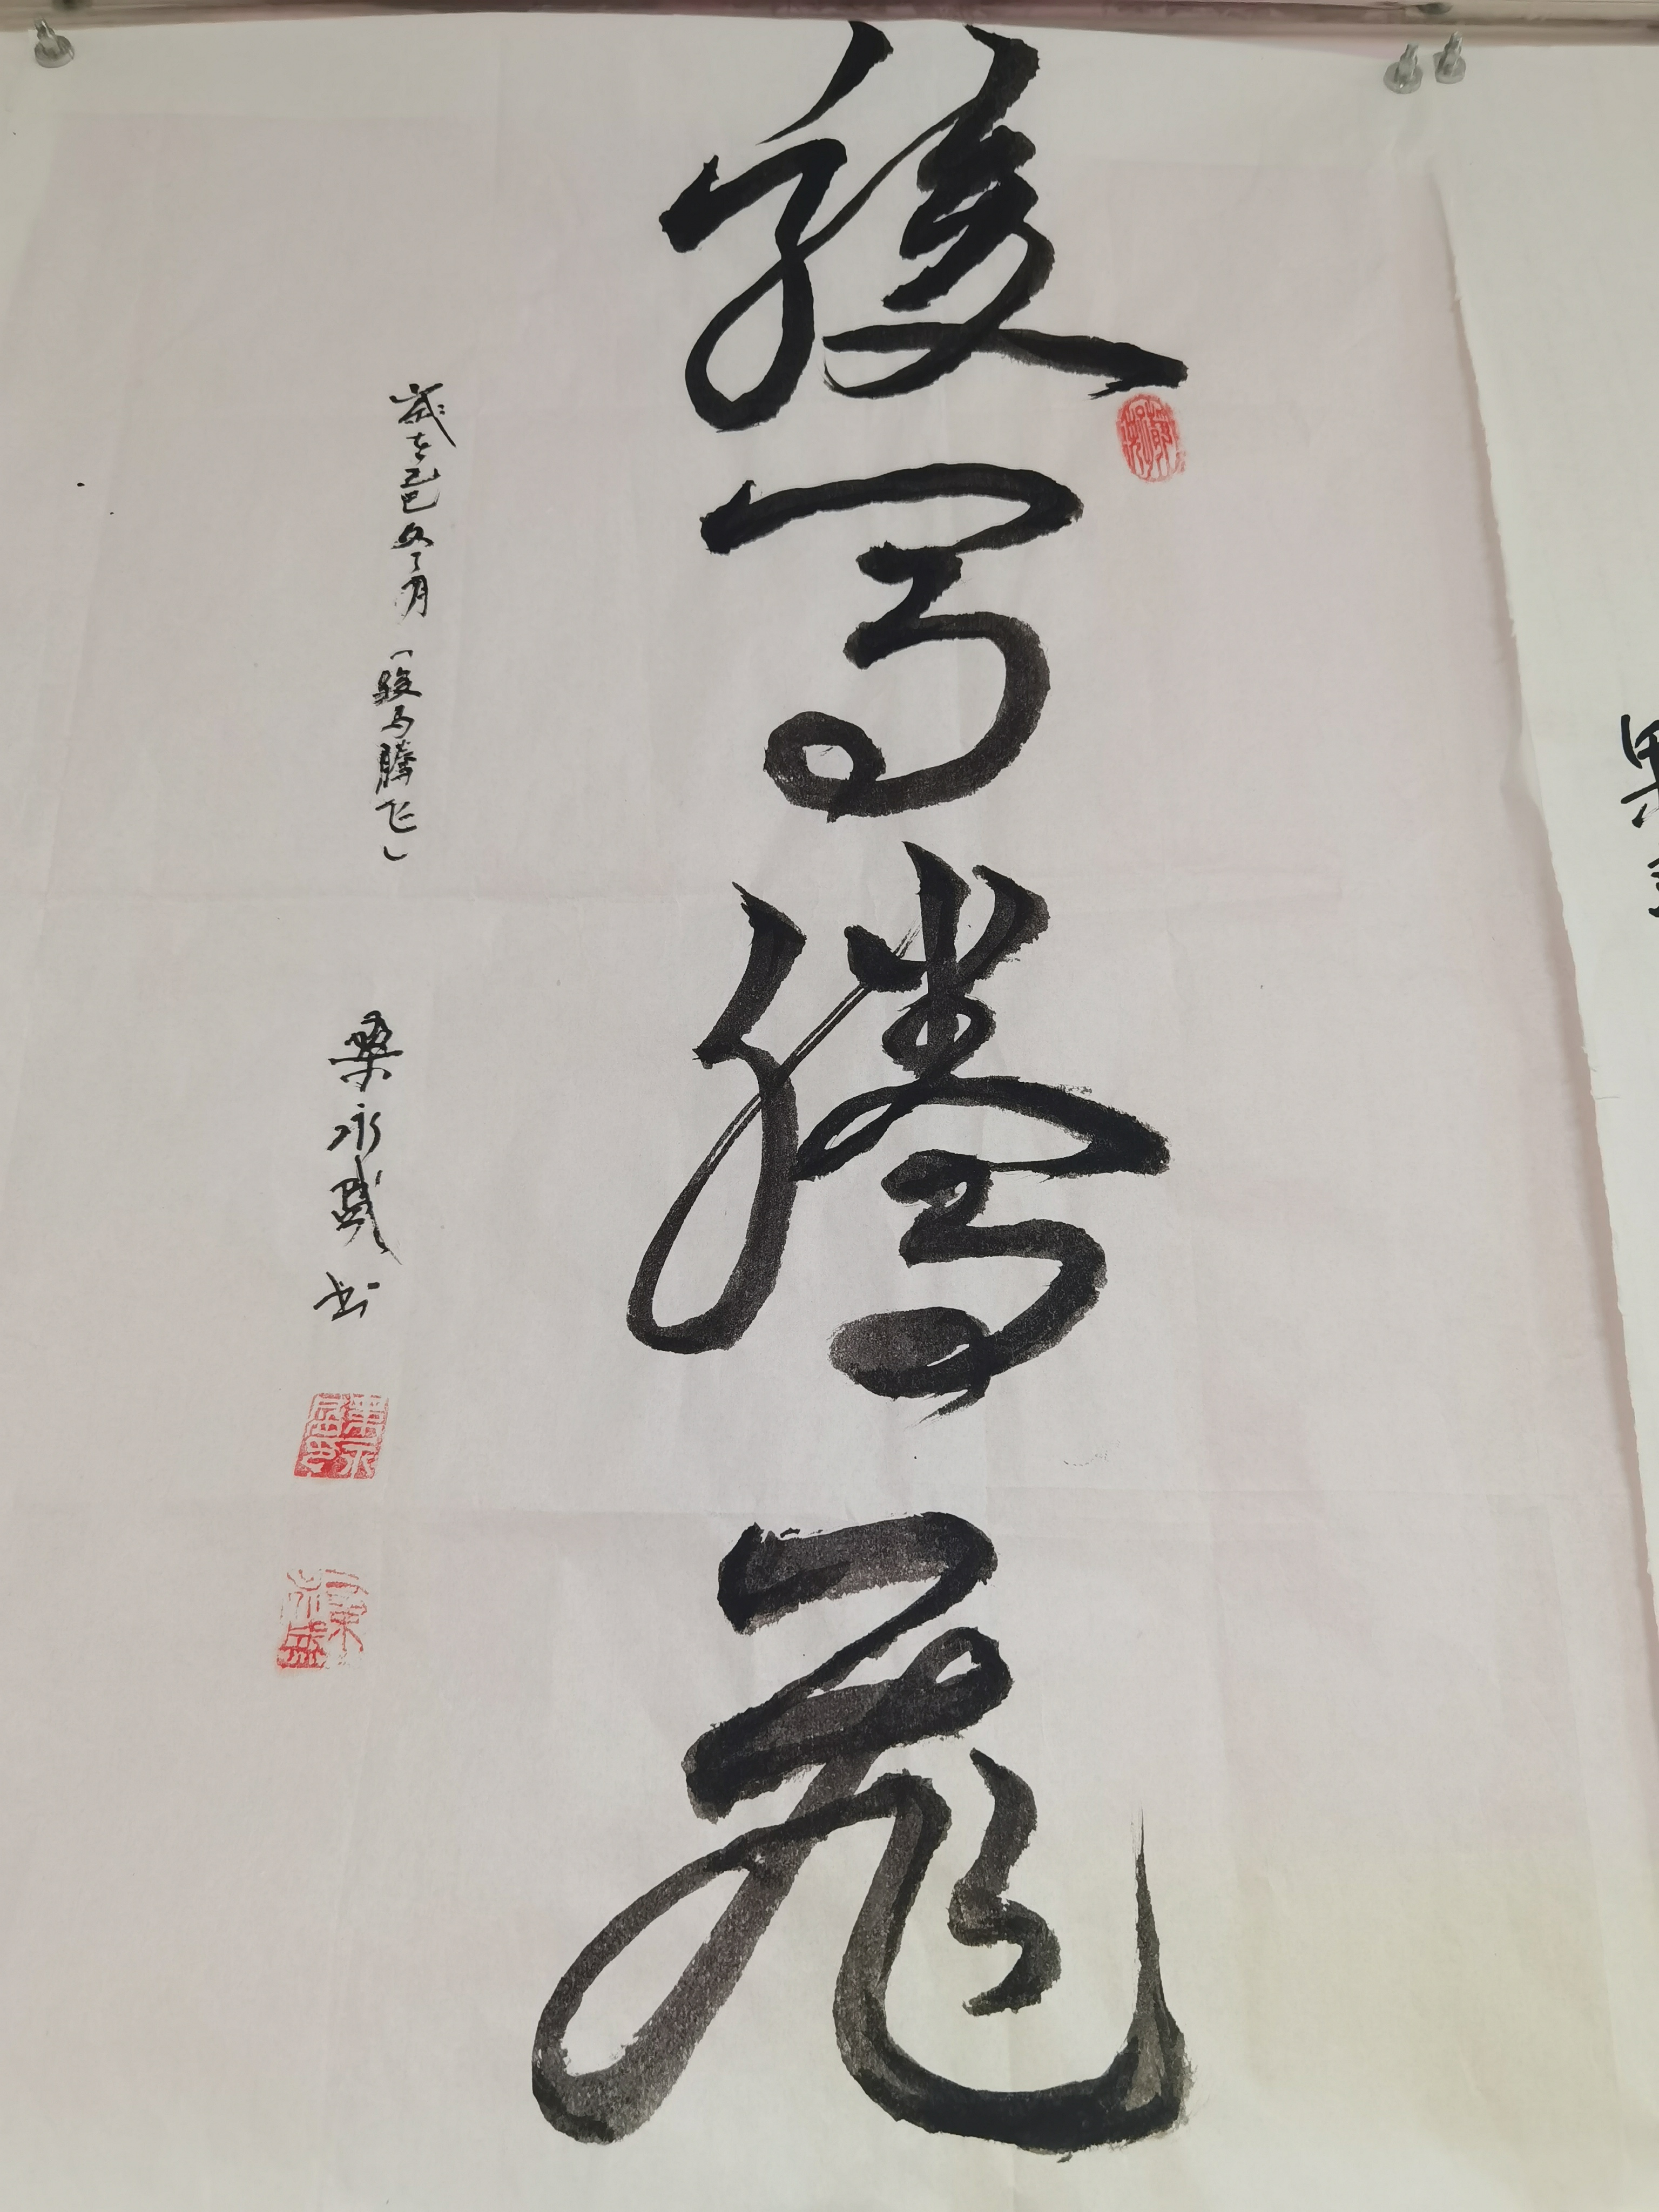 骏马腾飞
岁在乙巳冬月「骏马腾飞」
桑永盛书